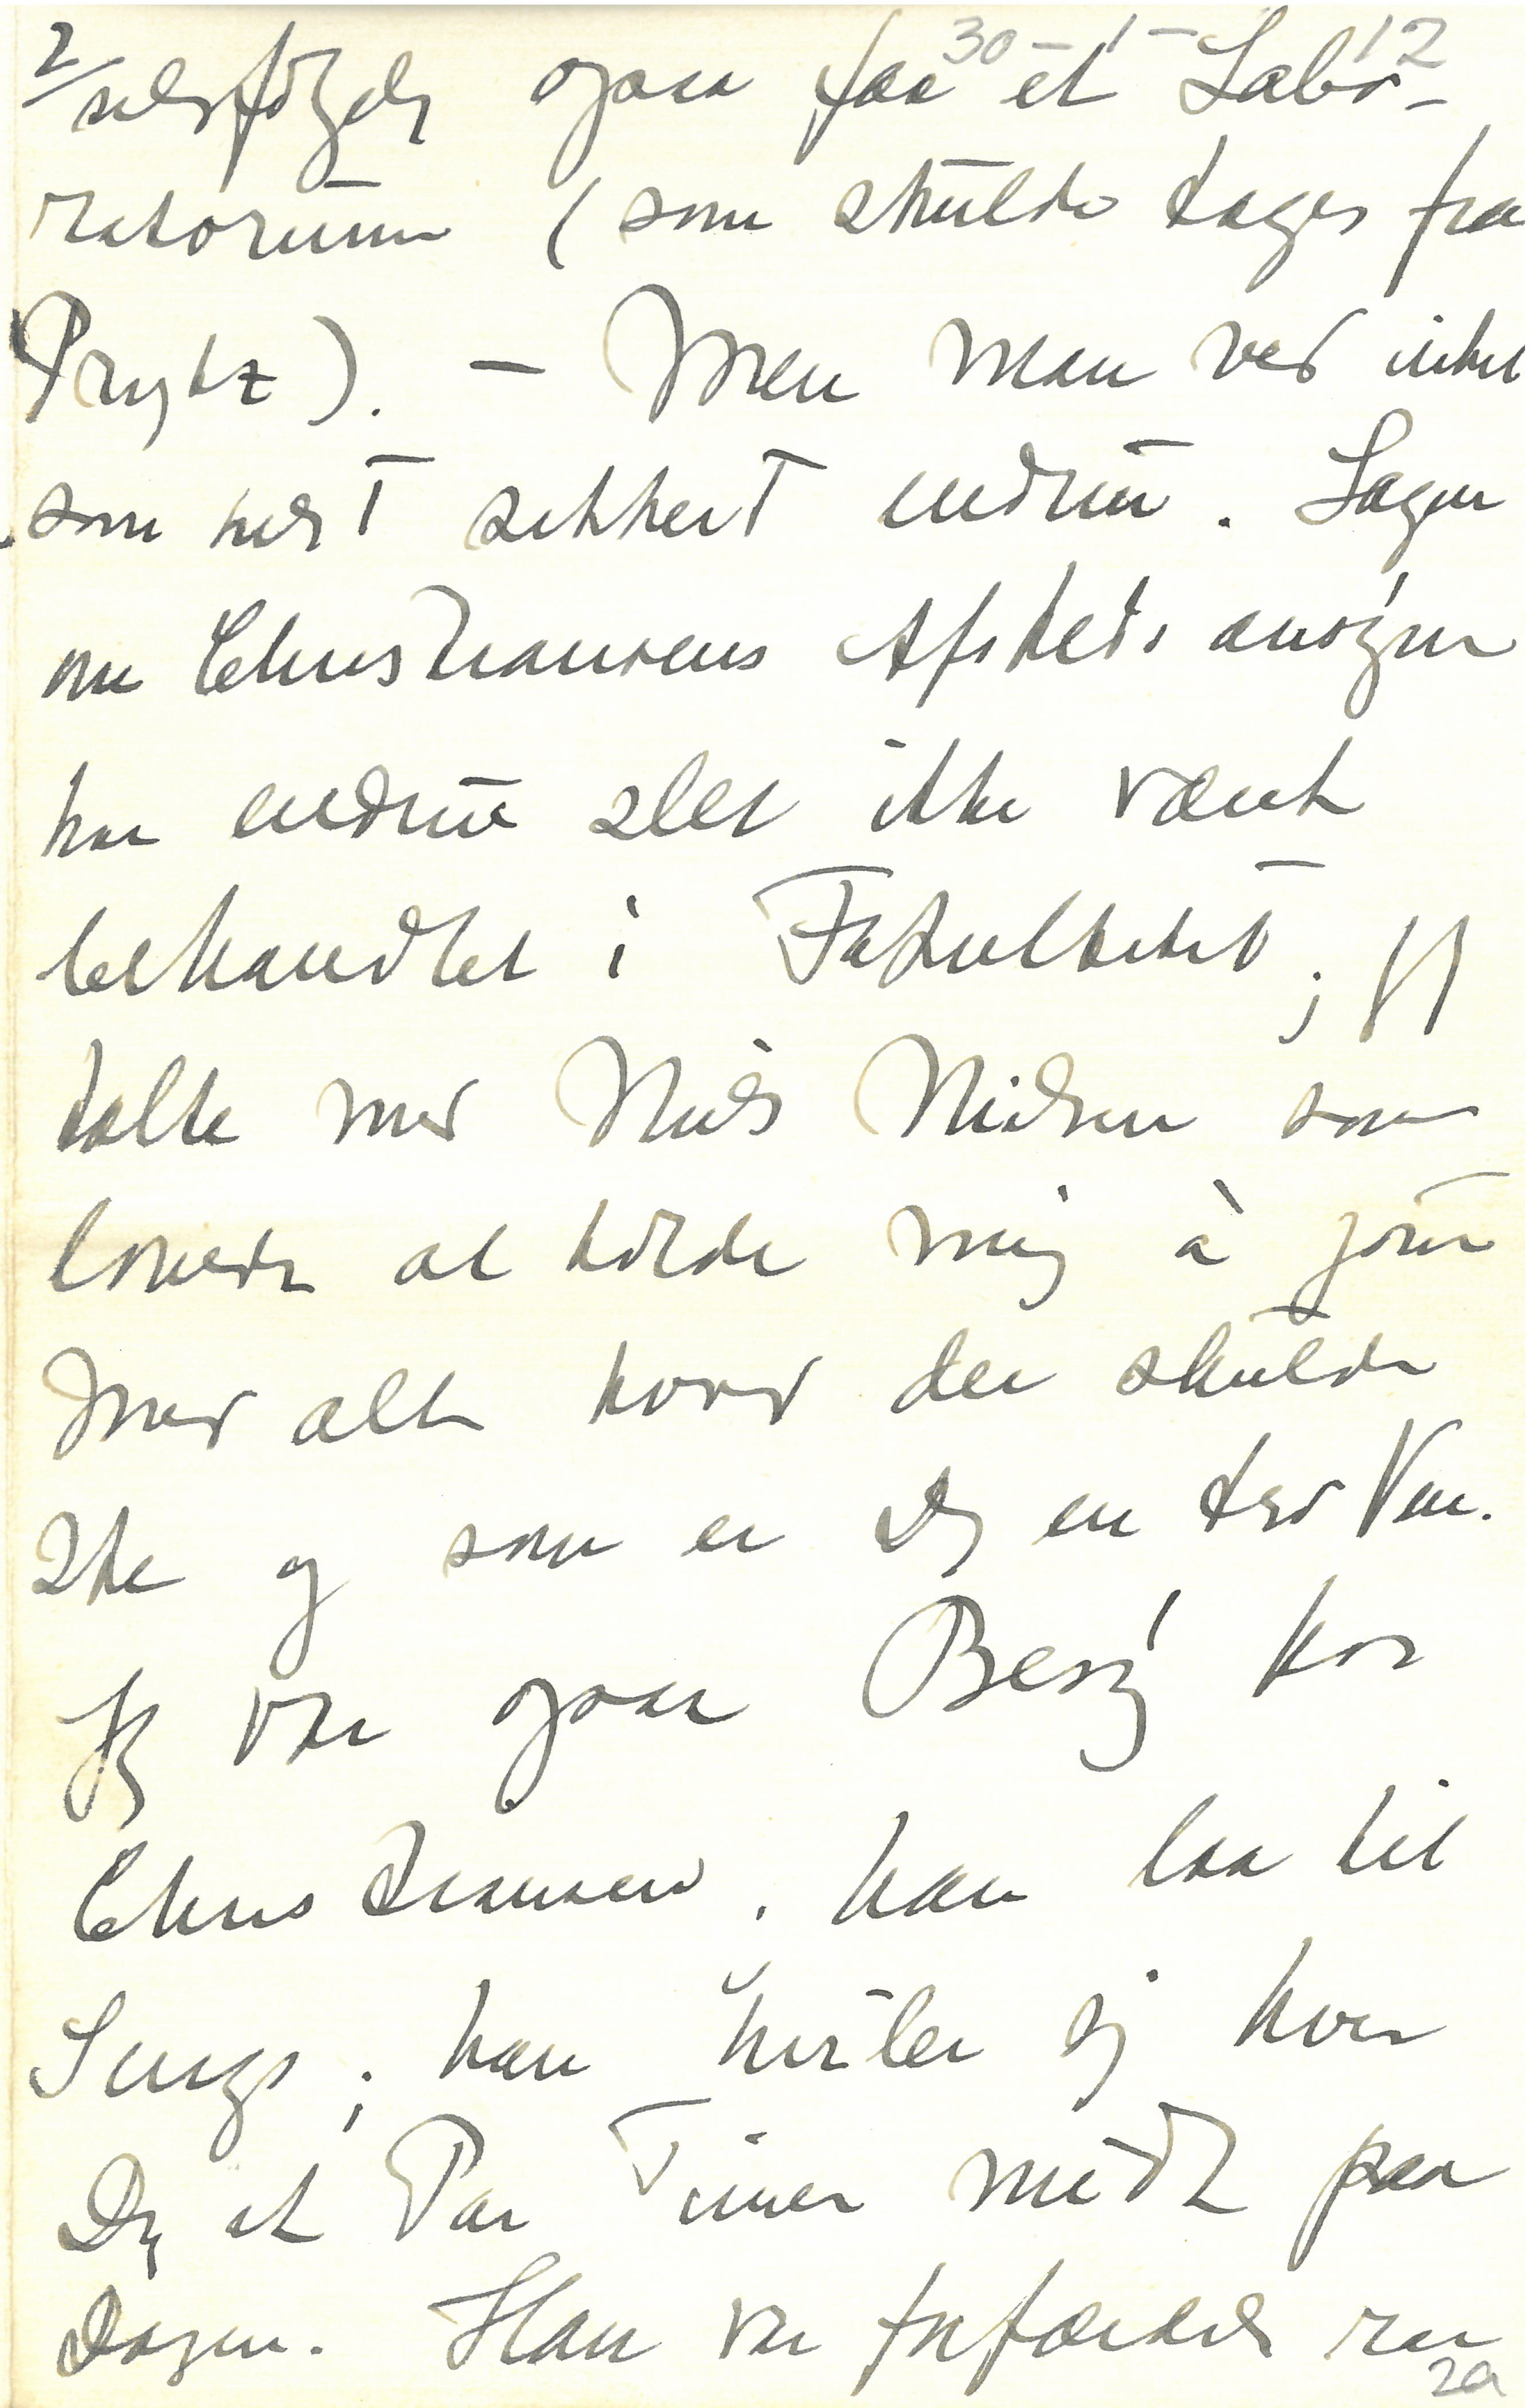 30-1-12
2/ selvfølgelig ogsaa faa et Labo-
ratorium (som skulde tages fra
Prytz). – Men man ved intet
som helst sikkert endnu. Sagen
om Christiansens Afskedsansøgn
har endnu slet ikke været
behandlet i Fakultetet; jeg
talte med Niels Nielsen som
lovede at holde mig à jour
med alt hvad der skulde
ske og som er Dig en tro Ven.
Jeg var ogsaa Besøg hos
Christiansen. han laa til
Sengs; han hviler sig hver
Dag et Par Timer midt paa
Dagen. Han var forfærdelig rar
2a